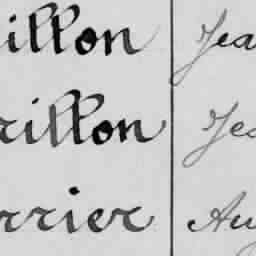 illon Jea
rillon Jea
rrier Au